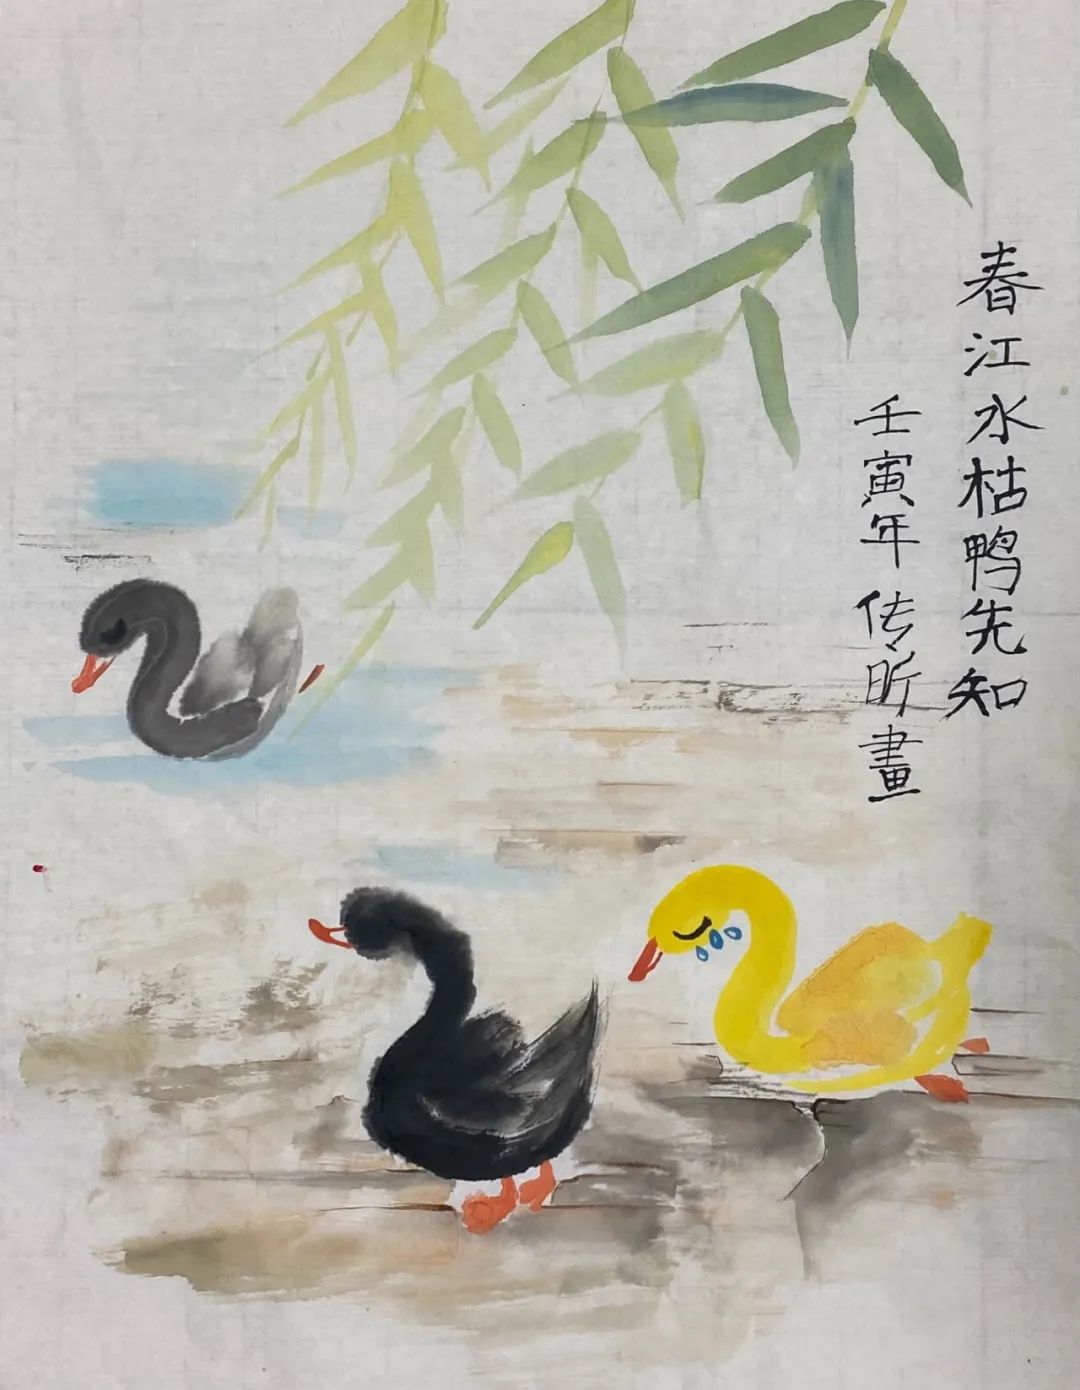 春江水枯鸭先知
壬寅年 传昕畫